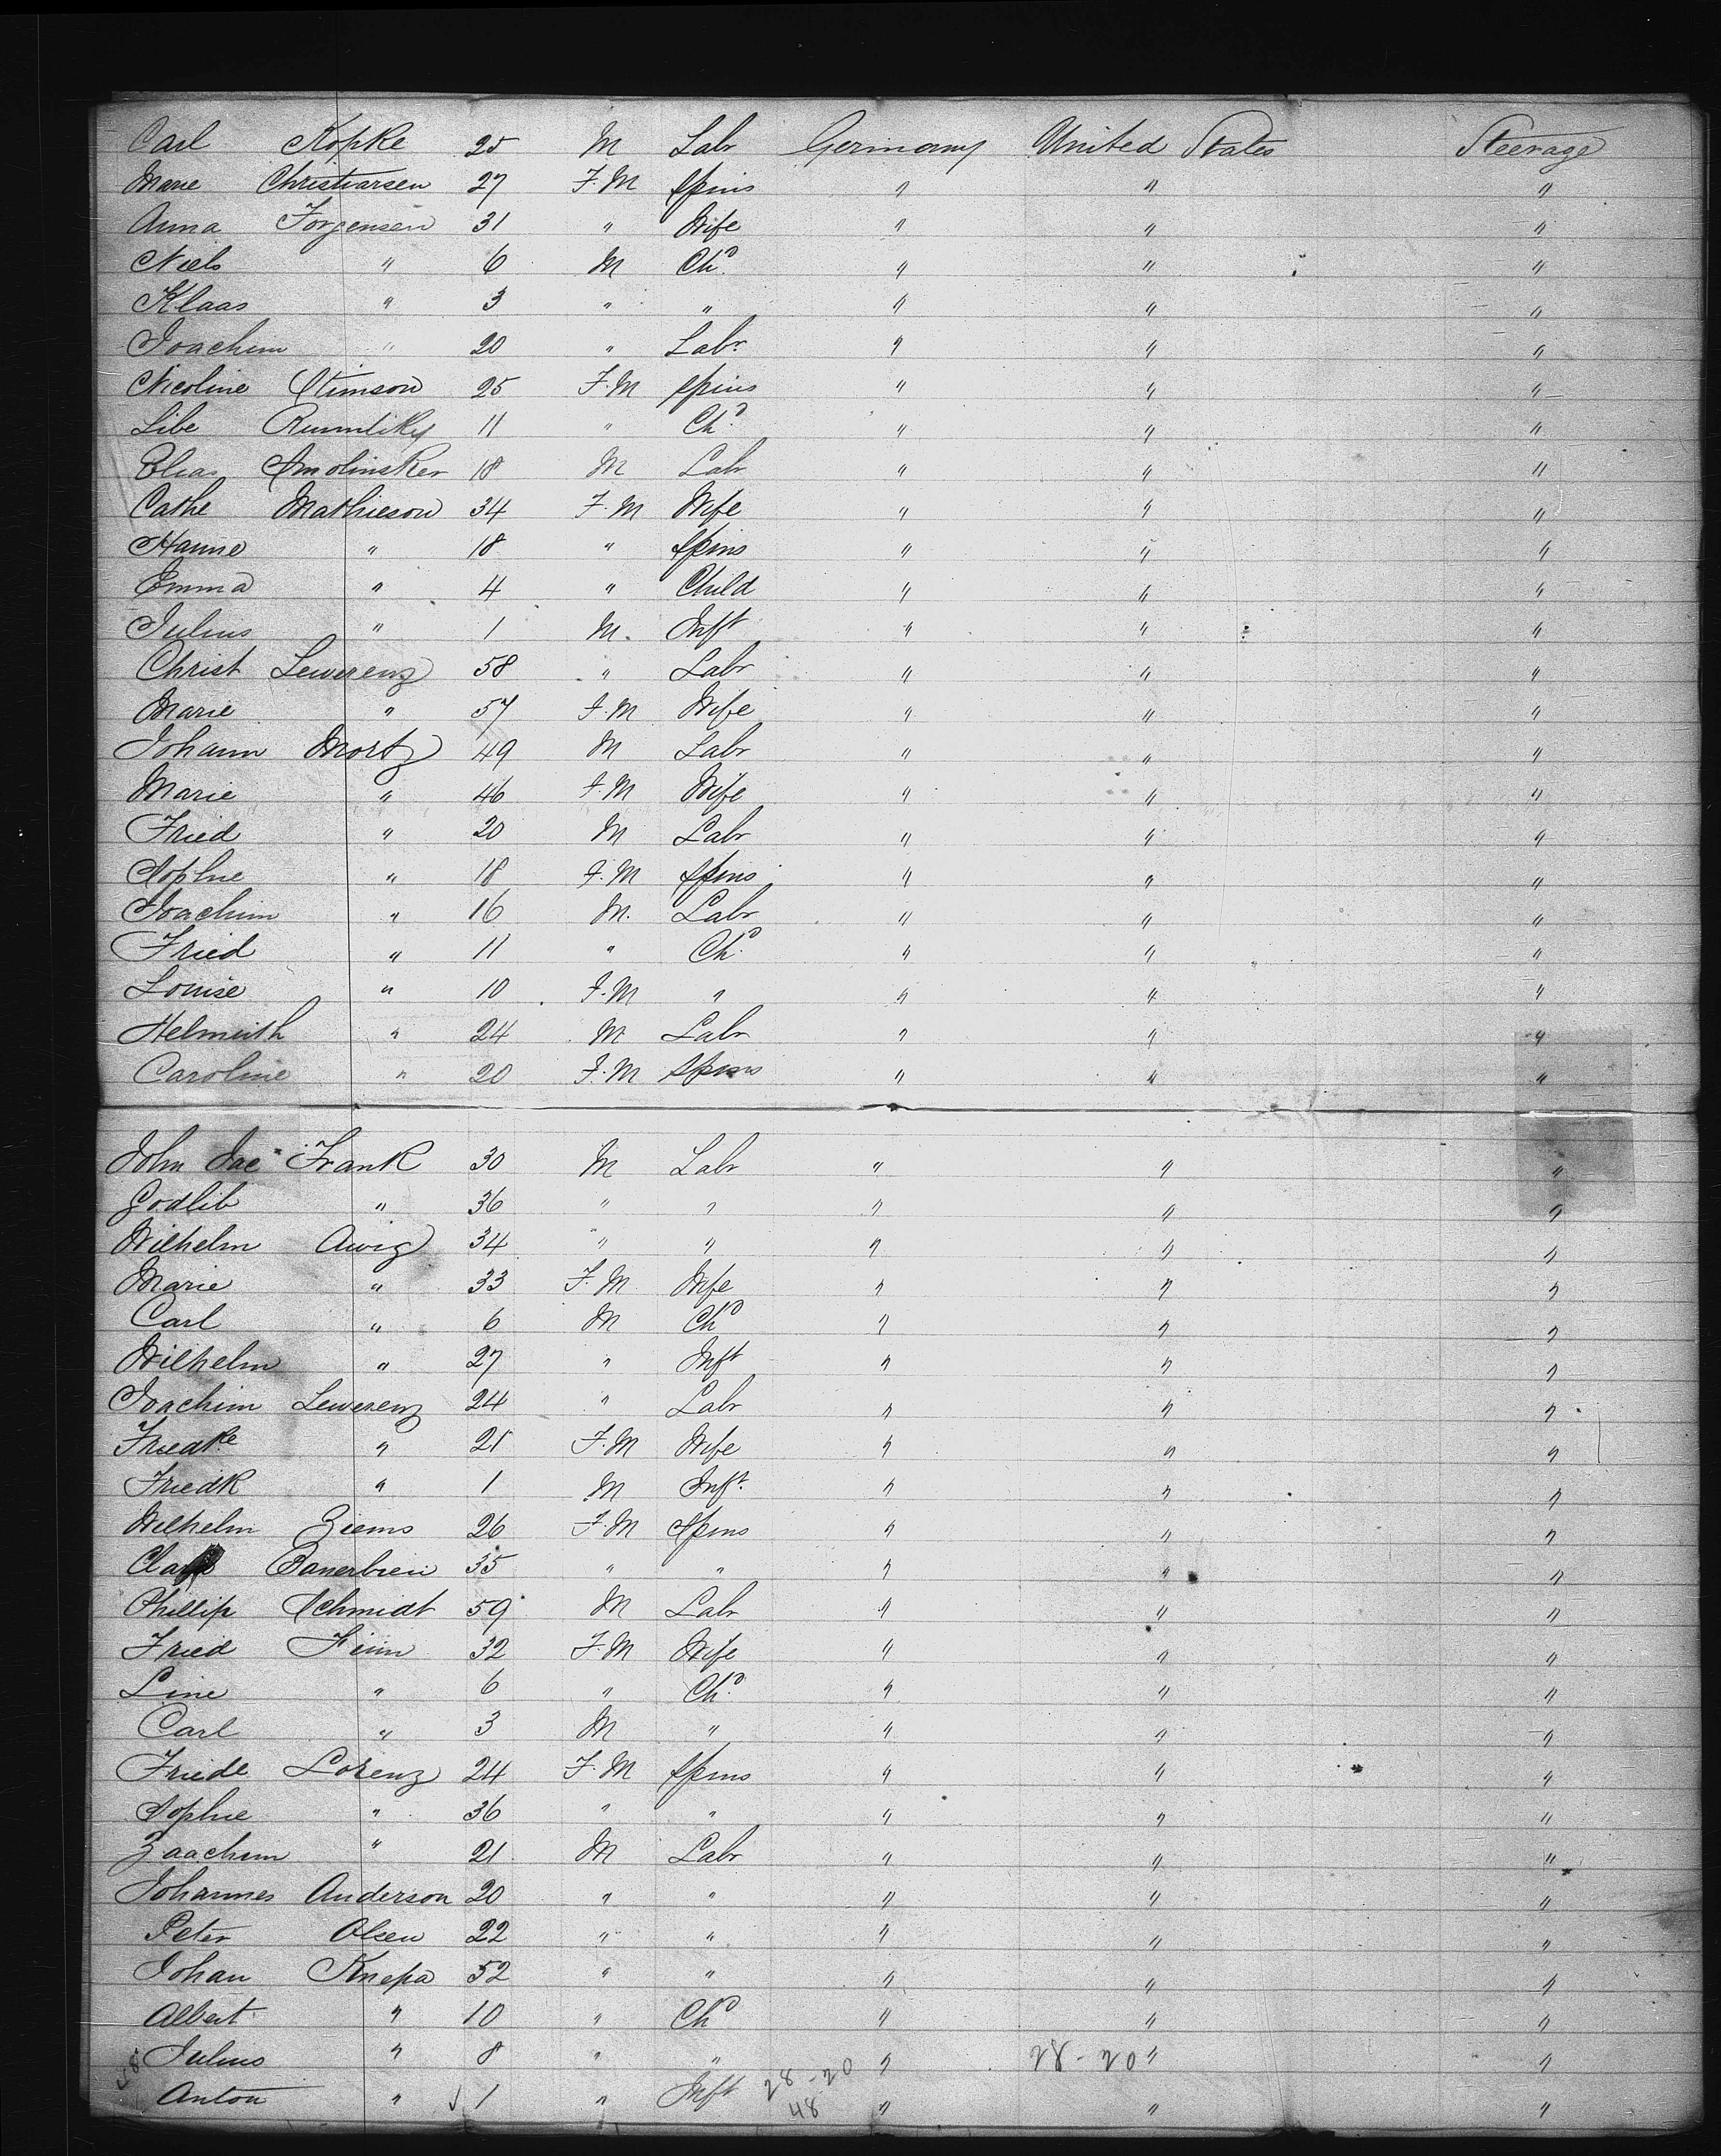 Carl Kopke 25 M Labr Germany United States Steerage
Marie Christiansen 27 F.M Spins " " "
Anna Jorgensen 31 " Wife " " "
Niels " 6 M Chd " " "
Klaas " 3 " " " " "
Joachim " 20 " Labr " " "
Nicoline Stimson 25 F.M Spins " " "
Libe 11 " Chd " " "
Elias Smolinsker 18 M Labr " " "
Cathe Mathieson 34 F.M Wife " " "
Hanne " 18 " Spins " " "
Emma " 4 " Child " " "
Julius " 1 M. Inft " " "
Christ Lewerenz 58 " Labr " " "
Marie " 57 F.M Wife " " "
Johann Mortz 49 M Labr " " "
Marie " 46 F.M Wife " " "
Fried " 20 M Labr " " "
Sophie " 18 F.M Spins " " "
Joachim " 16 M. Labr " " "
Fried " 11 " Chd " " "
Louise " 10 F.M " " " "
Helmuth " 24 M Labr " " "
Caroline " 20 F.M Spins " " "
John Jac Frank 30 M Labr " " "
Godlib " 36 " " " " "
Wilhelm Awig 34 " " " " "
Marie " 33 F.M Wife " " "
Carl " 6 M Chd " " "
Wilhelm " 27 " Inft " " "
Joachim Lewerenz 24 " Labr " " "
Friedke " 21 F.M Wife " " "
Friedk " 1 M Inft " " "
Wilhelm Ziems 26 F.M Spins " " "
35 " " " " "
Phillip Schmidt 59 M Labr " " "
Fried 32 F.M Wife " " "
Line " 6 " Chd " " "
Carl " 3 M " " " "
Friede Lorenz 24 F.M Spins " " "
Sophie " 36 " " " " "
Zaachim " 21 M Labr " " "
Johannes Anderson 20 " " " " "
Peter Olsen 22 " " " " "
Johan Knepa 52 " " " " "
Albert " 10 " Chd " " "
Julius " 8 " " " 28-20 " "
Anton " 1 " Inft 28-20 48 " " "